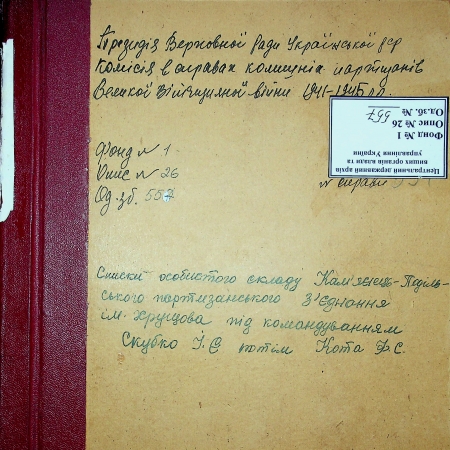 Президія Верховної Ради Української РСР
Комісія в справах колишніх партизанів
Великої Вітчизняної війни 1941-1945 рр.
Фонд № 1
Опис № 26
Од. зб. 557
№ справи
Центральний державний архів
вищих органів влади та
управління України
Фонд № 1
Опис № 26
Од.зб. № 557
Списки особистого складу Кам'янець-Поділь-
ського партизанського З'єднання
ім. Хрущова під командуванням
Скубко І.Є потім Кота Ф.С.